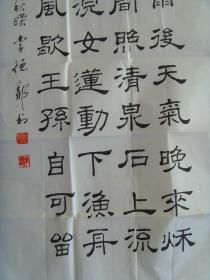 雨後天氣晚來秌
間照清泉石上流
浣女蓮動下漁舟
風歇王孫自可留
秋暝 李德